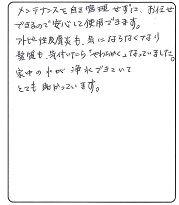 メンテナンスを自己管理せずに、お任せ
できるので安心して使用できます。
アトピー性皮膚炎も、気にならなくなり
髪質も気付いたら「やわらかく」なっていました。
家中の水が浄水できていて
とても助かっています。